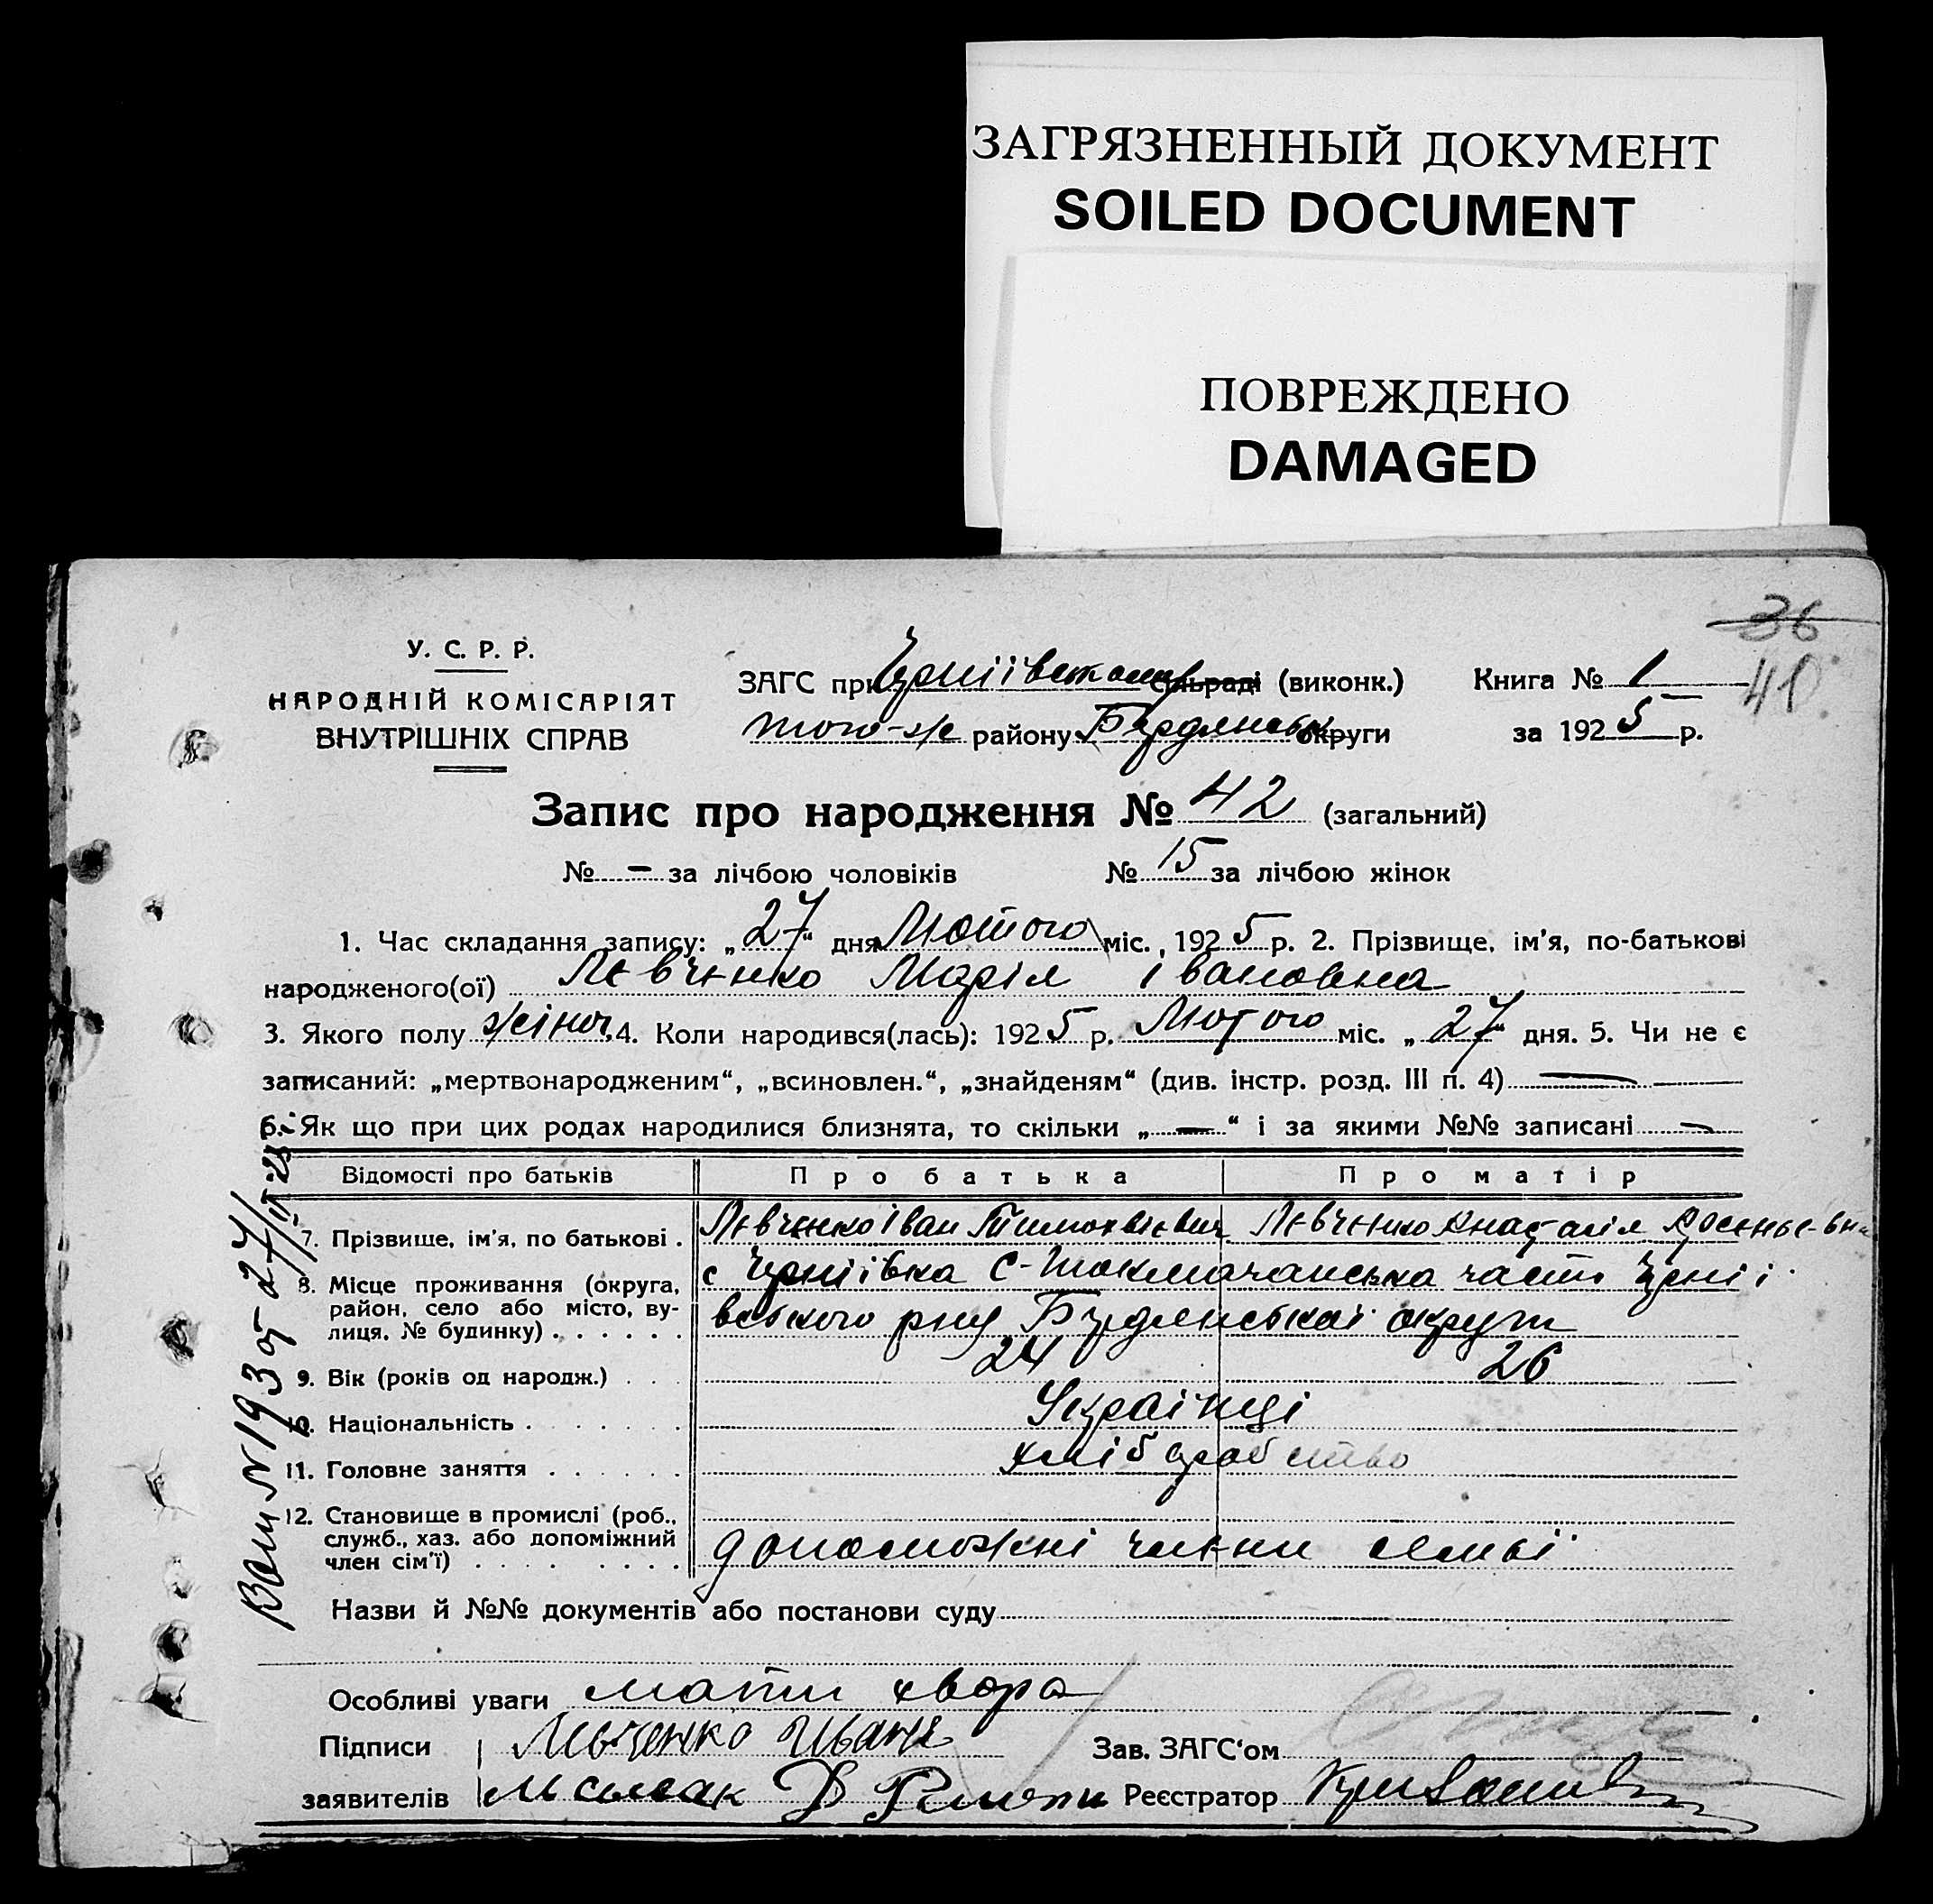 ЗАГРЯЗНЕННЫЙ ДОКУМЕНТ
SOILED DOCUMENT
ПОВРЕЖДЕНО
DAMAGED
36
40
У. С. Р. Р.
НАРОДНІЙ КОМІСАРІЯТ
ВНУТРІШНІХ СПРАВ
ЗАГС при Чрніївском сільраді (виконк.)
того-же району Бердянськ округи
Книга № 1
за 1925 р.
Запис про народження № 42 (загальний)
№ – за лічбою чоловіків № 15 за лічбою жінок
1. Час складання запису: „27“ дня Лютого міс., 1925 р. 2. Прізвище, ім'я, по-батькові
народженого(ої) Левченко Марія Івановна
3. Якого полу жіноч. 4. Коли народився(лась): 1925 р. Лютого міс. „27“ дня. 5. Чи не є
записаний: „мертвонародженим“, „всиновлен.“, „знайденям“ (див. інстр. розд. III п. 4) —
6. Як що при цих родах народилися близнята, то скільки „—“ і за якими №№ записані —
Відомості про батьків Про батька Про матір
7. Прізвище, ім'я, по батькові . Левченко Іван Тимохвієвич Левченко Анастасія
8. Місце проживання (округа, район, село або місто, вулиця, № будинку) . . . . . .
с Чрніївка С-Токмачанська часть Чрнії
вського рну Бердянської округи
9. Вік (років од народж.) . . . 24 26
10. Національність . . . . . . Українці
11. Головне заняття . . . . . хліборобство
12. Становище в промислі (роб., служб., хаз. або допоміжний член сім'ї) . . . . . . .
допоможні члени семьї
Назви й №№ документів або постанови суду
Особливі уваги мати хвора
Підписи Льченко Иванъ Зав. ЗАГС'ом
заявителів Реєстратор